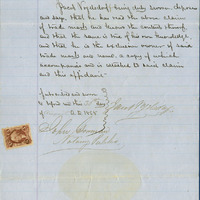 being duly sworn, deposes
and says, that he has read the above claim
of trade mark, and knows the contents thereof,
and that the same is true of his own knowledge,
and that he is the exclusive owner of said
trade mark and name, a copy of which
accompanies and is attached to said claim
and this affidavit
Subscribed and sworn
to before me this day
A.D. 1865
John
Notary Public